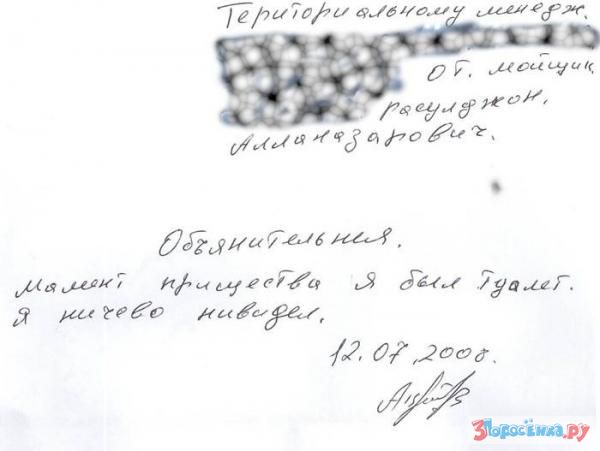 Териториальному менедж.
от. мойщик
Расулджон.
Алланазарович.
Объянительная.
Мамент прищества я был туалет.
Я ничево нивидел.
12.07.2008.
3Поросёнка.ру